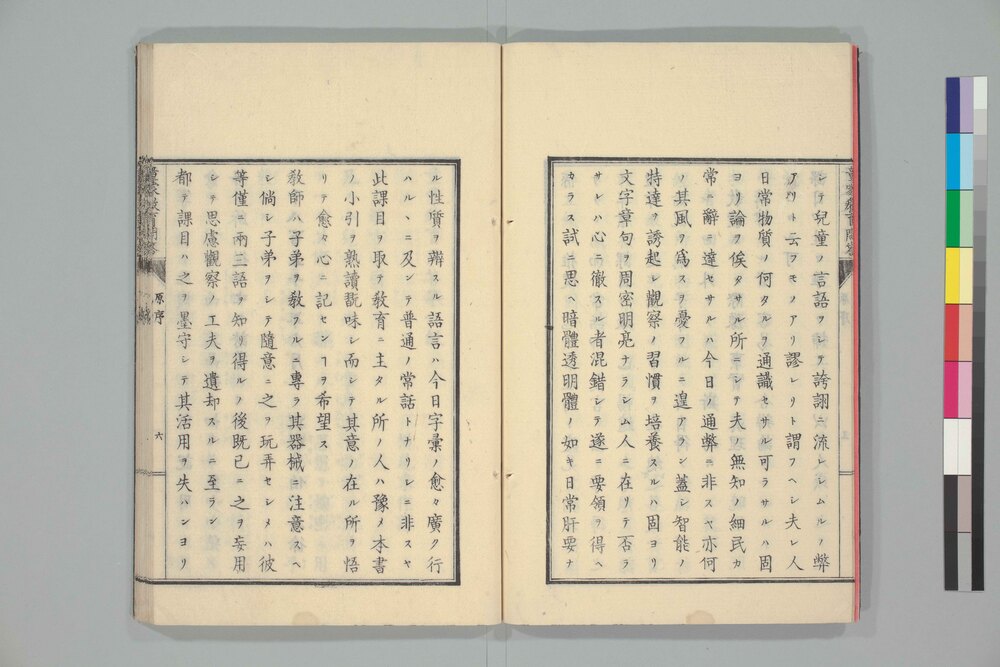 シテ兒童ノ言語ヲシテ誇詡ニ流レシムルノ弊
アリト云フモノアリ謬レリト謂フヘシ夫レ人
日常物質ノ何タルヲ通識セサル可ラサルハ固
ヨリ論ヲ俟タサル所ニシテ夫ノ無知ノ細民カ
常ニ辭ニ達セサルハ今日ノ通弊ニ非スヤ亦何
ノ其風ヲ爲スヲ憂フルニ遑アラン蓋シ智能ノ
特達ヲ誘起シ觀察ノ習慣ヲ培養スルハ固ヨリ
文字章句ヲ周密明亮ナラシム人ニ在リテ否ラ
サレハ心ニ徹スル者混錯シテ遂ニ要領ヲ得ヘ
カラス試ニ思ヘ暗體透明體ノ如キ日常肝要ナ
ル性質ヲ辨スル語言ハ今日字彙ノ愈々廣ク行
ハルヽニ及ンテ普通ノ常話トナリシニ非スヤ
此課目ヲ取テ敎育ニ主タル所ノ人ハ豫メ本書
ノ小引ヲ熟讀翫味シ而シテ其意ノ在ル所ヲ悟
リテ愈々心ニ記センヿヲ希望ス
敎師ハ子弟ヲ敎フルニ專ラ其器械ニ注意スヘ
シ倘シ子弟ヲシテ隨意ニ之ヲ玩弄セシメハ彼
等僅ニ兩三語ヲ知リ得ルノ後既已ニ之ヲ妄用
シテ思慮觀察ノ工夫ヲ遺却スルニ至ラン
都テ課目ハ之ヲ墨守シテ其活用ヲ失ハンヨリ
原序
六